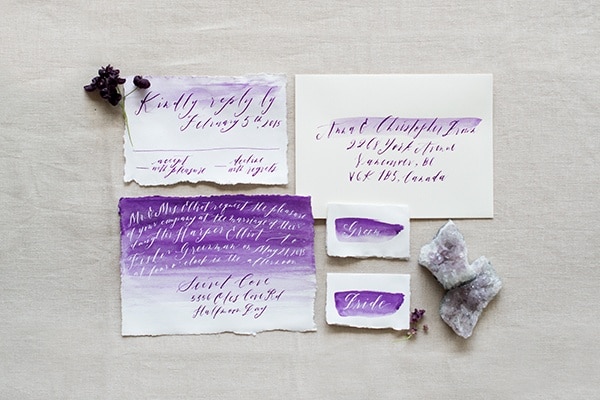 Kindly reply by
February 5th, 2015
accept
with pleasure
decline
with regrets
Anna & Christopher
2268 York Avenue
Vancouver, BC
V6K 1B5, Canada
Mr & Mrs Elliot request the pleasure
of your company at the marriage of their
daughter Harper Elliot to
Greenman on May 21, 2015
at four o'clock in the afternoon
Secret Cove
5356 Oles Cove Rd
Halfmoon Bay
Groom
Bride